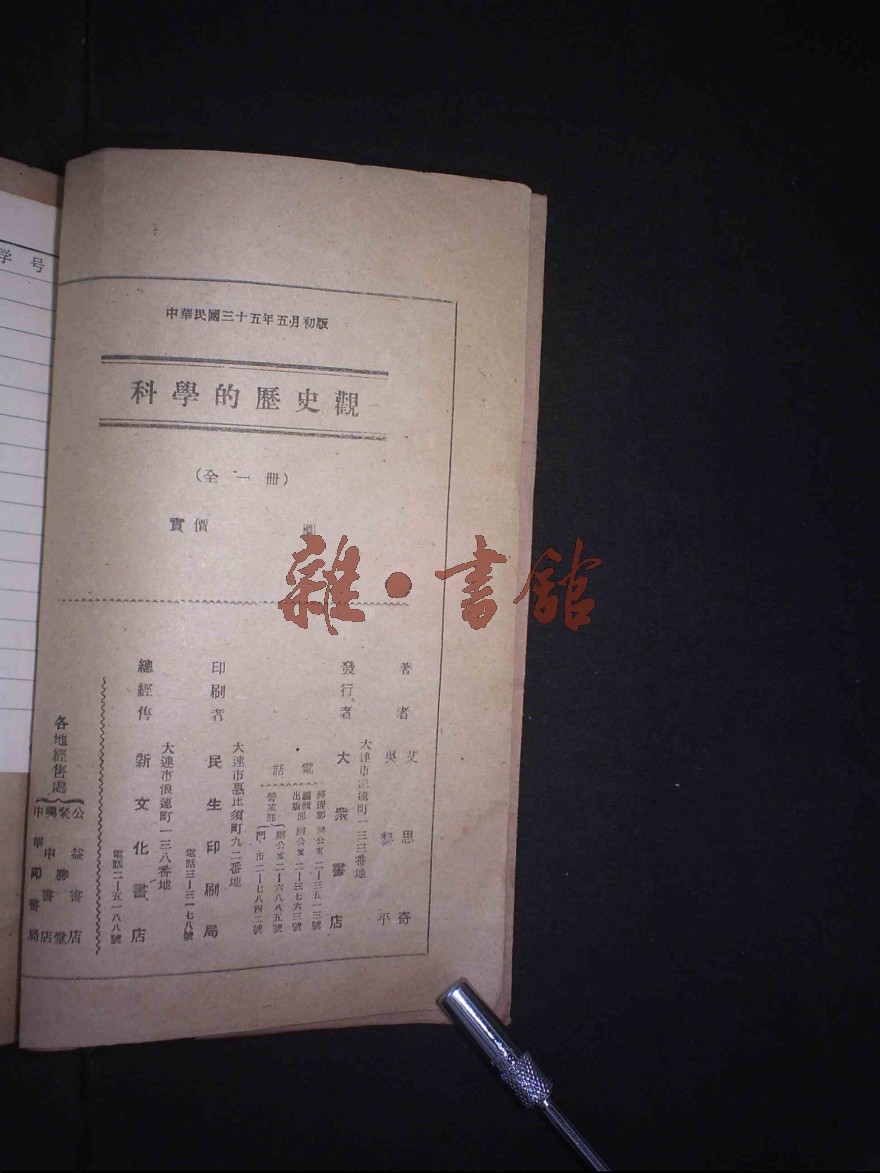 学号
中華民國三十五年五月初版
科學的歷史觀
（全一冊）
實價 圓
雜·書館
著者 艾思奇
吳黎平
大連市浪速町一三三番地
發行者 大衆書店
電話
經理部 辦公室 二—三五一三號
編輯部
出版部 辦公室 二—三七六三號
營業部 辦公室 二—六八八五號
門市 二—七八四二號
大連市惠比須町九二番地
印刷者 民生印刷局
電話三—三一七八號
大連市浪速町一三八番地
總經售 新文化書店
電話二—五一八八號
各地經售處
公益書店